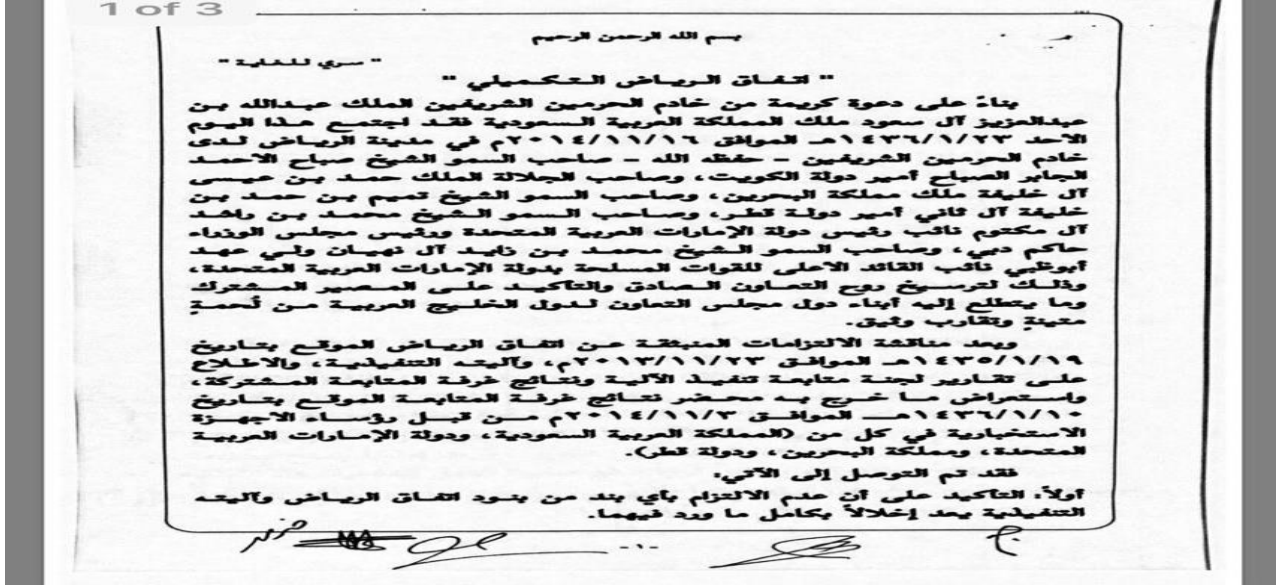 1 of 3
بسم الله الرحمن الرحيم
" سري للغاية "
" اتفاق الرياض التكميلي "
بناءً على دعوة كريمة من خادم الحرمين الشريفين الملك عبدالله بن
عبدالعزيز آل سعود ملك المملكة العربية السعودية فقد اجتمع هذا اليوم
الاحد ١٤٣٦/١/٢٣هـ الموافق ٢٠١٤/١١/١٦م في مدينة الرياض لدى
خادم الحرمين الشريفين - حفظه الله - صاحب السمو الشيخ صباح الاحمد
الجابر الصباح أمير دولة الكويت، وصاحب الجلالة الملك حمد بن عيسى
آل خليفة ملك مملكة البحرين، وصاحب السمو الشيخ تميم بن حمد بن
خليفة آل ثاني أمير دولة قطر، وصاحب السمو الشيخ محمد بن راشد
آل مكتوم نائب رئيس دولة الإمارات العربية المتحدة ورئيس مجلس الوزراء
حاكم دبي، وصاحب السمو الشيخ محمد بن زايد آل نهيان ولي عهد
أبوظبي نائب القائد الأعلى للقوات المسلحة بدولة الإمارات العربية المتحدة،
وذلك لترسيخ روح التعاون الصادق والتأكيد على المصير المشترك
وما يتطلع إليه أبناء دول مجلس التعاون لدول الخليج العربية من لُحمةٍ
متينةٍ وتقارب وثيق.
وبعد مناقشة الالتزامات المنبثقة عن اتفاق الرياض الموقع بتاريخ
١٤٣٥/١/١٩هـ الموافق ٢٠١٣/١١/٢٣م، وآليته التنفيذية، والاطلاع
على تقارير لجنة متابعة تنفيذ الآلية ونتائج غرفة المتابعة المشتركة،
واستعراض ما خرج به محضر نتائج غرفة المتابعة الموقع بتاريخ
١٤٣٦/١/١٠هـ الموافق ٢٠١٤/١١/٣م من قبل رؤساء الاجهزة
الاستخبارية في كل من (المملكة العربية السعودية، ودولة الإمارات العربية
المتحدة، ومملكة البحرين، ودولة قطر).
فقد تم التوصل إلى الآتي:
أولاً: التأكيد على أن عدم الالتزام بأي بند من بنود اتفاق الرياض وآليته
التنفيذية يعد إخلالاً بكامل ما ورد فيهما.
-١-